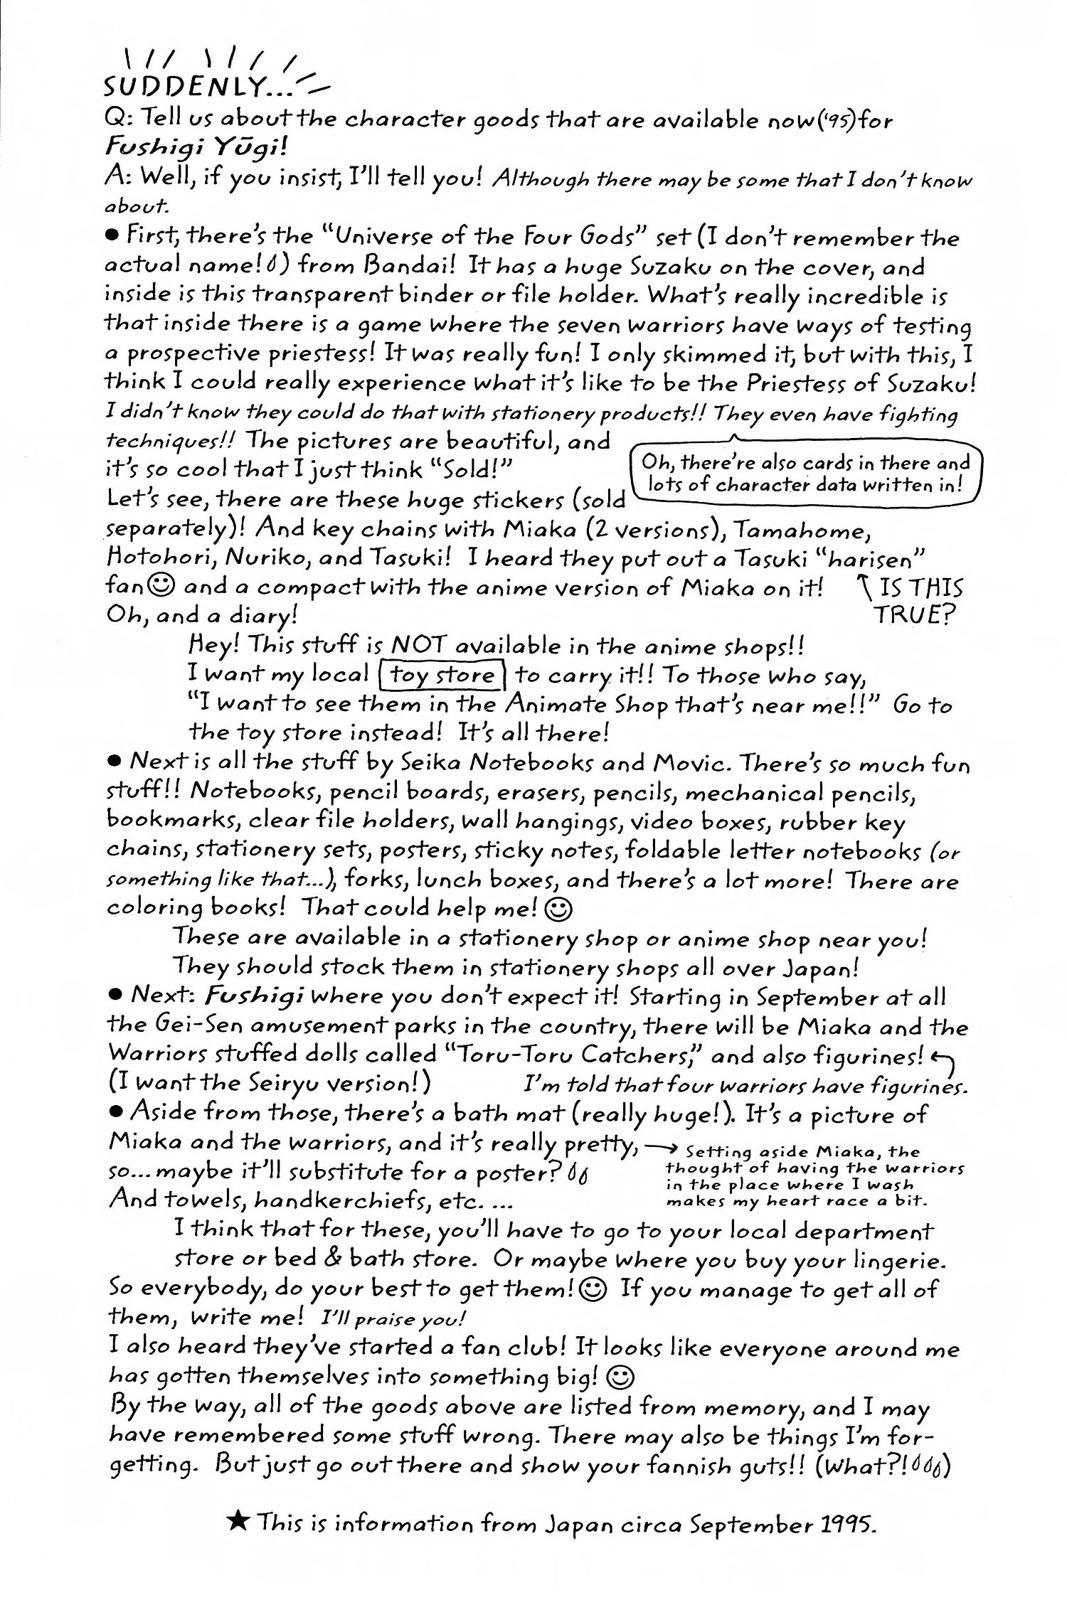 SUDDENLY...
Q: Tell us about the character goods that are available now ('95) for
Fushigi Yūgi!
A: Well, if you insist, I'll tell you! Although there may be some that I don't know
about.
● First, there's the "Universe of the Four Gods" set (I don't remember the
actual name!) from Bandai! It has a huge Suzaku on the cover, and
inside is this transparent binder or file holder. What's really incredible is
that inside there is a game where the seven warriors have ways of testing
a prospective priestess! It was really fun! I only skimmed it, but with this, I
think I could really experience what it's like to be the Priestess of Suzaku!
I didn't know they could do that with stationery products!! They even have fighting
techniques!! The pictures are beautiful, and
it's so cool that I just think "Sold!"
Oh, there're also cards in there and
lots of character data written in!
Let's see, there are these huge stickers (sold
separately)! And key chains with Miaka (2 versions), Tamahome,
Hotohori, Nuriko, and Tasuki! I heard they put out a Tasuki "harisen"
fan☺ and a compact with the anime version of Miaka on it!
IS THIS
TRUE?
Oh, and a diary!
Hey! This stuff is NOT available in the anime shops!!
I want my local toy store to carry it!! To those who say,
"I want to see them in the Animate Shop that's near me!!" Go to
the toy store instead! It's all there!
● Next is all the stuff by Seika Notebooks and Movic. There's so much fun
stuff!! Notebooks, pencil boards, erasers, pencils, mechanical pencils,
bookmarks, clear file holders, wall hangings, video boxes, rubber key
chains, stationery sets, posters, sticky notes, foldable letter notebooks (or
something like that...), forks, lunch boxes, and there's a lot more! There are
coloring books! That could help me! ☺
These are available in a stationery shop or anime shop near you!
They should stock them in stationery shops all over Japan!
● Next: Fushigi where you don't expect it! Starting in September at all
the Gei-Sen amusement parks in the country, there will be Miaka and the
Warriors stuffed dolls called "Toru-Toru Catchers," and also figurines!
(I want the Seiryu version!)
I'm told that four warriors have figurines.
● Aside from those, there's a bath mat (really huge!). It's a picture of
Miaka and the warriors, and it's really pretty,
so... maybe it'll substitute for a poster?
Setting aside Miaka, the
thought of having the warriors
in the place where I wash
makes my heart race a bit.
And towels, handkerchiefs, etc. ...
I think that for these, you'll have to go to your local department
store or bed & bath store. Or maybe where you buy your lingerie.
So everybody, do your best to get them! ☺ If you manage to get all of
them, write me! I'll praise you!
I also heard they've started a fan club! It looks like everyone around me
has gotten themselves into something big! ☺
By the way, all of the goods above are listed from memory, and I may
have remembered some stuff wrong. There may also be things I'm for-
getting. But just go out there and show your fannish guts!! (What?!)
★ This is information from Japan circa September 1995.